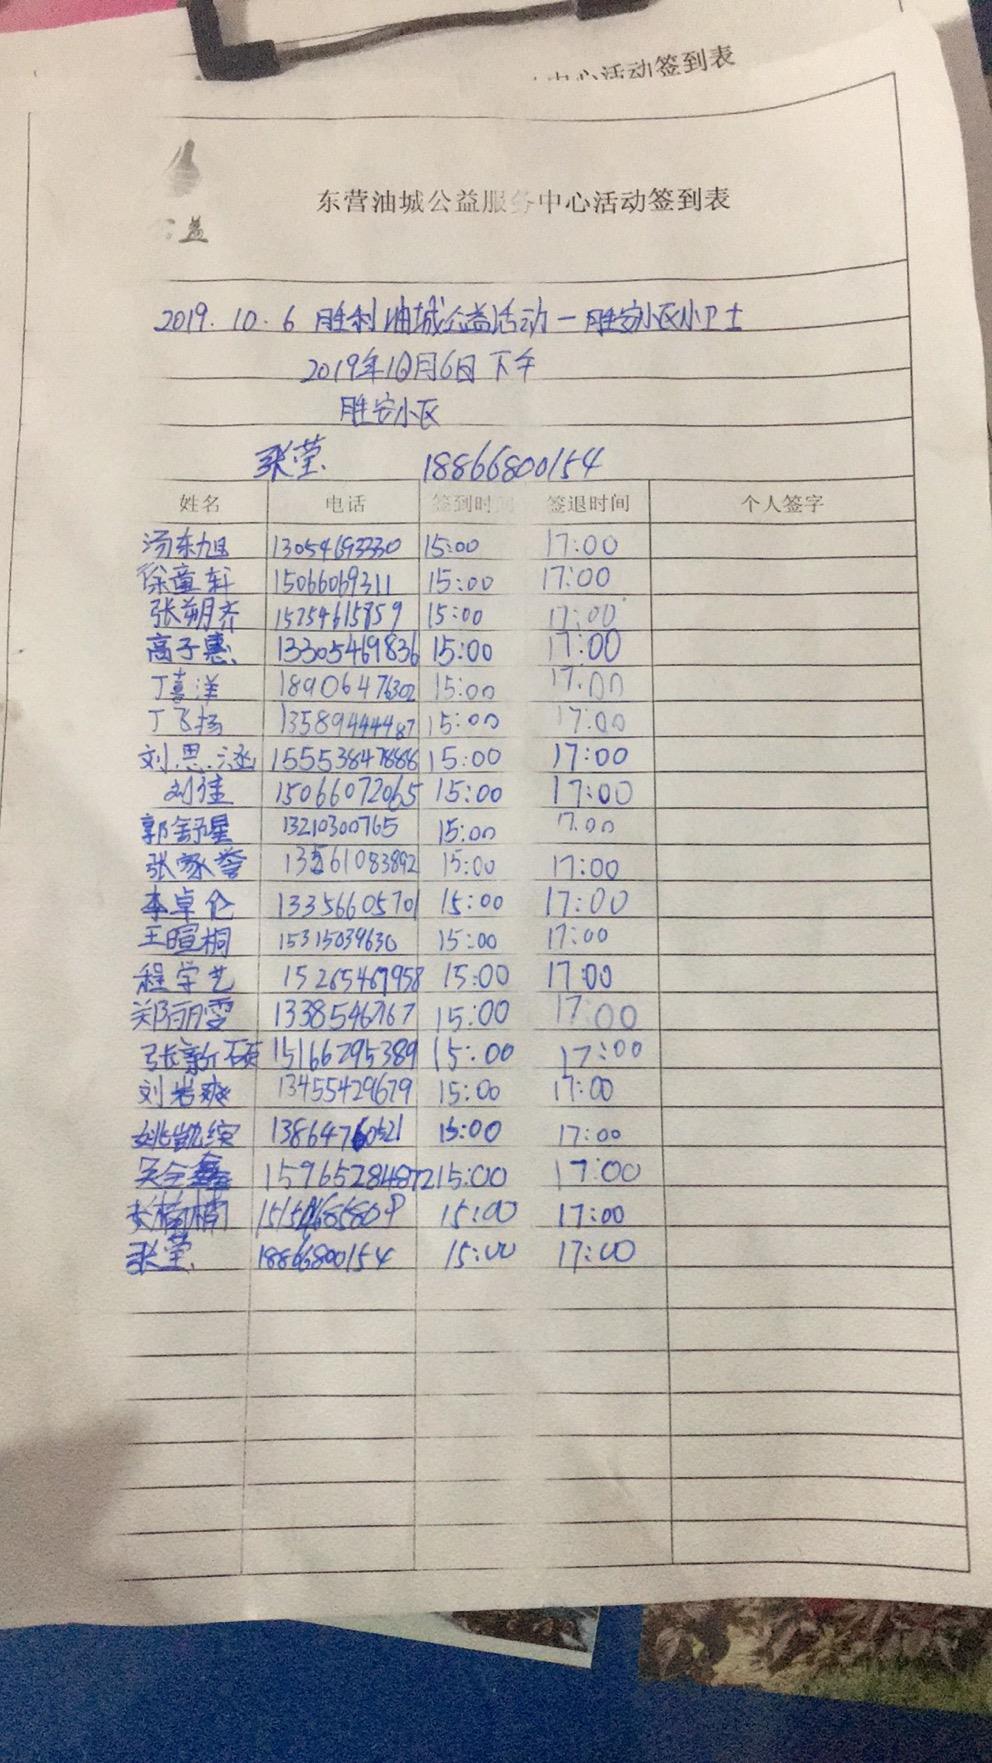 中心活动签到表
公益
东营油城公益服务中心活动签到表
2019.10.6 胜利油城公益活动一胜安小区小卫士
2019年10月6日 下午
胜安小区
张莹 18866800154
姓名 电话 签到时间 签退时间 个人签字
汤东旭 13054693330 15:00 17:00
徐童轩 15066069311 15:00 17:00
张朔齐 15254615859 15:00 17:00
高子惠 13305469836 15:00 17:00
丁喜洋 18906476302 15:00 17:00
丁飞扬 13589444487 15:00 17:00
刘思涵 15553847886 15:00 17:00
刘佳 15066072065 15:00 17:00
郭舒星 13210300765 15:00 17:00
张家誉 13561083892 15:00 17:00
李卓伦 13356605701 15:00 17:00
王暄桐 15315039630 15:00 17:00
程学艺 15265467958 15:00 17:00
郑丽雯 1338546767 15:00 17:00
张新硕 15166295389 15:00 17:00
刘岩爽 13455429679 15:00 17:00
姚凯缤 13864760521 15:00 17:00
吴全鑫 15965284872 15:00 17:00
楠楠 15:00 17:00
张莹 18866800154 15:00 17:00